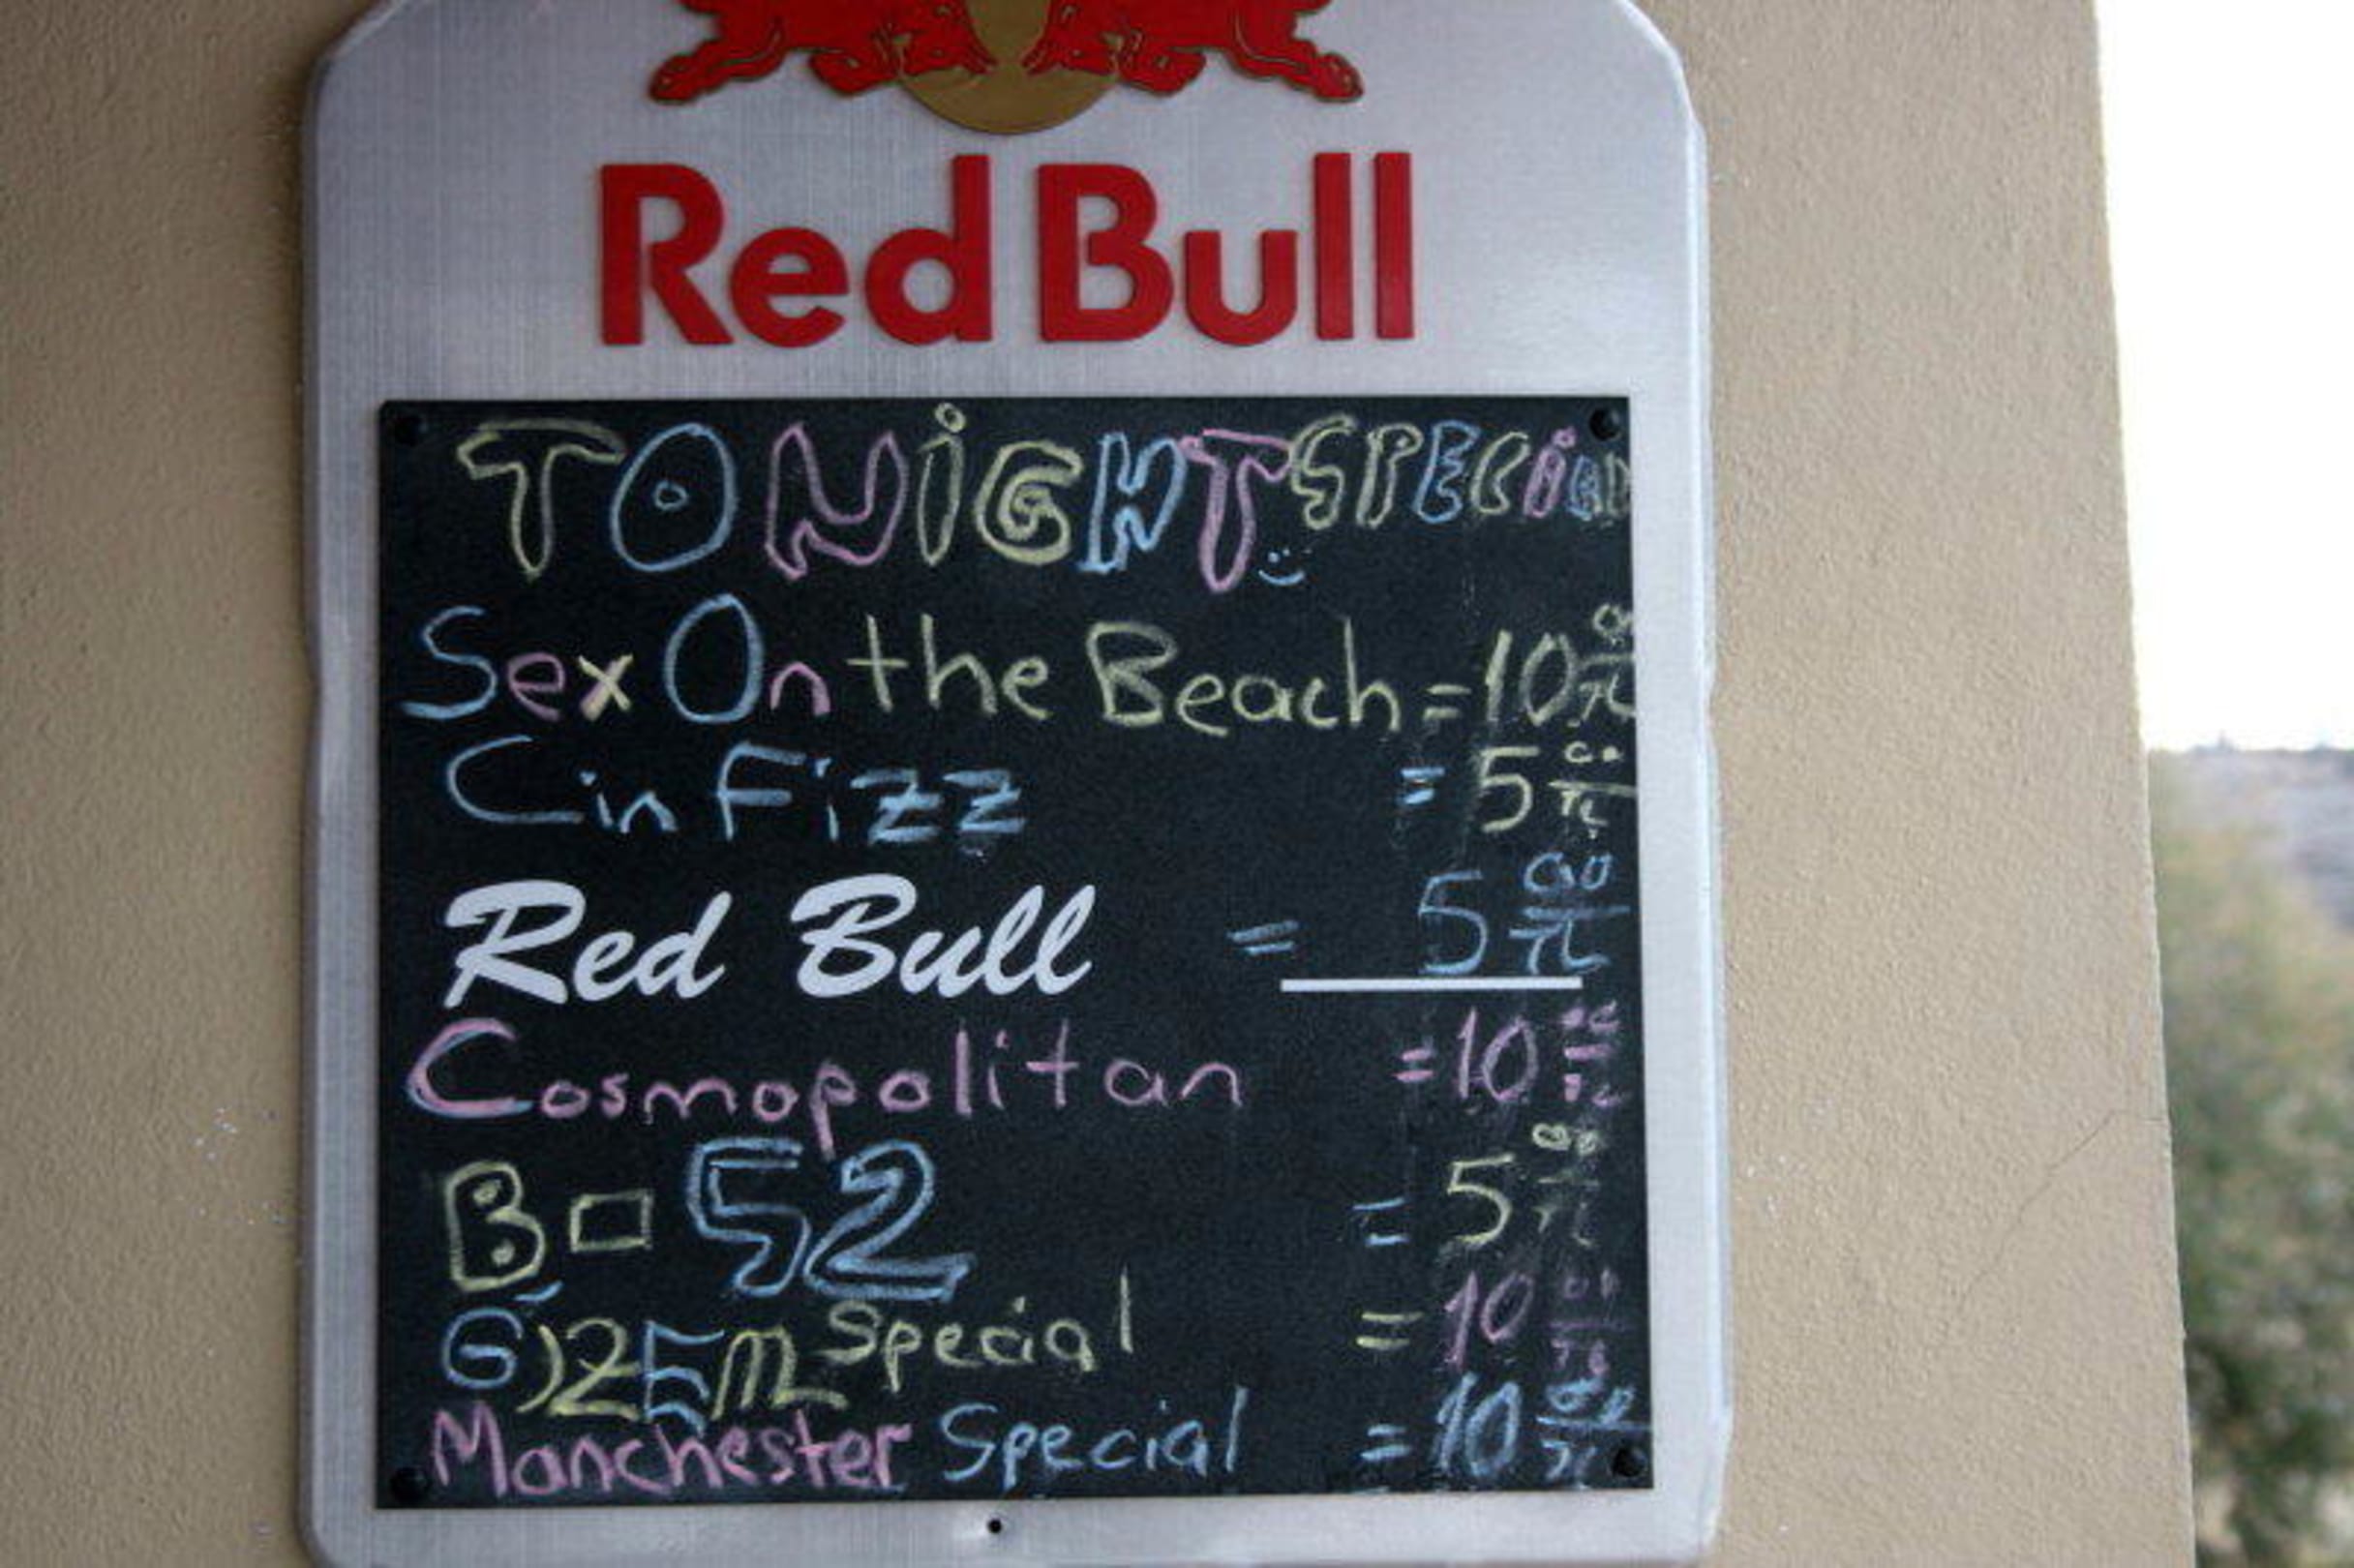 Red Bull
TONiGHT SPECiAL
Sex On the Beach = 10 00/TL
Cin Fizz = 5 00/TL
Red Bull = 5 00/TL
Cosmopolitan = 10 00/TL
B-52 = 5 00/TL
Special = 10 00/TL
Manchester Special = 10 00/TL